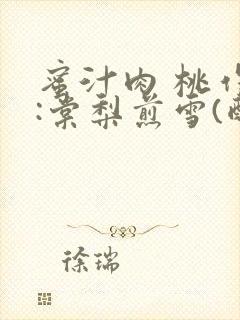 蜜汁肉桃作
:棠梨煎雪(
徐瑞